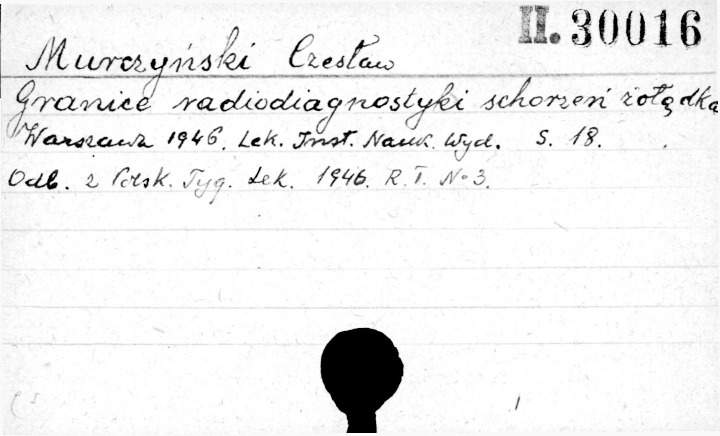 II. 30016
Murczyński Czesław
Granice radiodiagnostyki schorzeń żołądka
Warszawa 1946. Lek. Inst. Nauk. Wyd. S. 18.
Odb. z Polsk. Tyg. Lek. 1946. R. I. No 3.